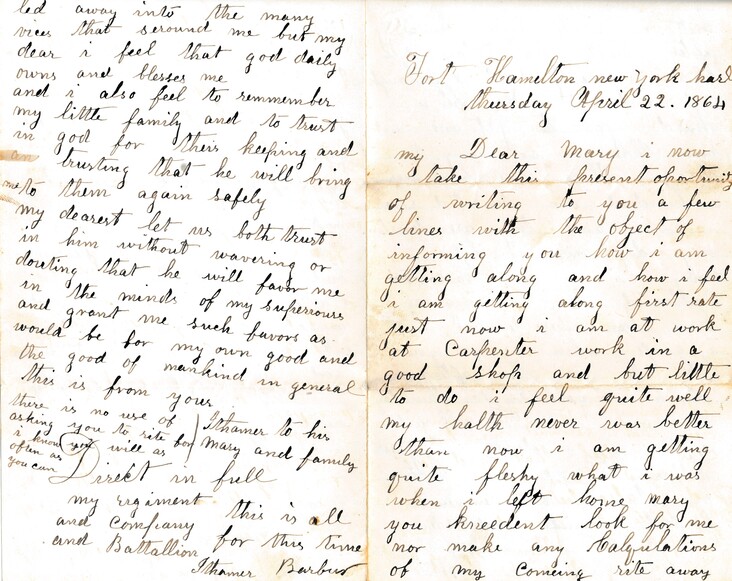 Fort Hamilton new york harb
thursday April 22. 1864
my Dear Mary i now
take this present oportunity
of writing to you a few
lines with the object of
informing you how i am
getting along and how i feel
i am getting along first rate
just now i am at work
at Carpenter work in a
good shop and but little
to do i feel quite well
my halth never was better
than now i am getting
quite fleshy what i was
when i left home mary
you kneedent look for me
nor make any Calqulations
of my comeing rite away
led away into the many
vices that seround me but my
dear i feel that god daily
owns and blesses me
and i also feel to remmember
my little family and to trust
in god for their keeping and
an trusting that he will bring
me to them again safely
my dearest let us both trust
in him without wavering or
douting that he will favor me
in the minds of my superiours
and grant me such favors as
would be for my own good and
the good of mankind in general
this is from yours
Ithamer to his
Mary and family
there is no use of
asking you to rite for
i know you will as
often as
you can
Direct in full
my regiment
and company
and Battallion
this is all
for this time
Ithamer Barbur